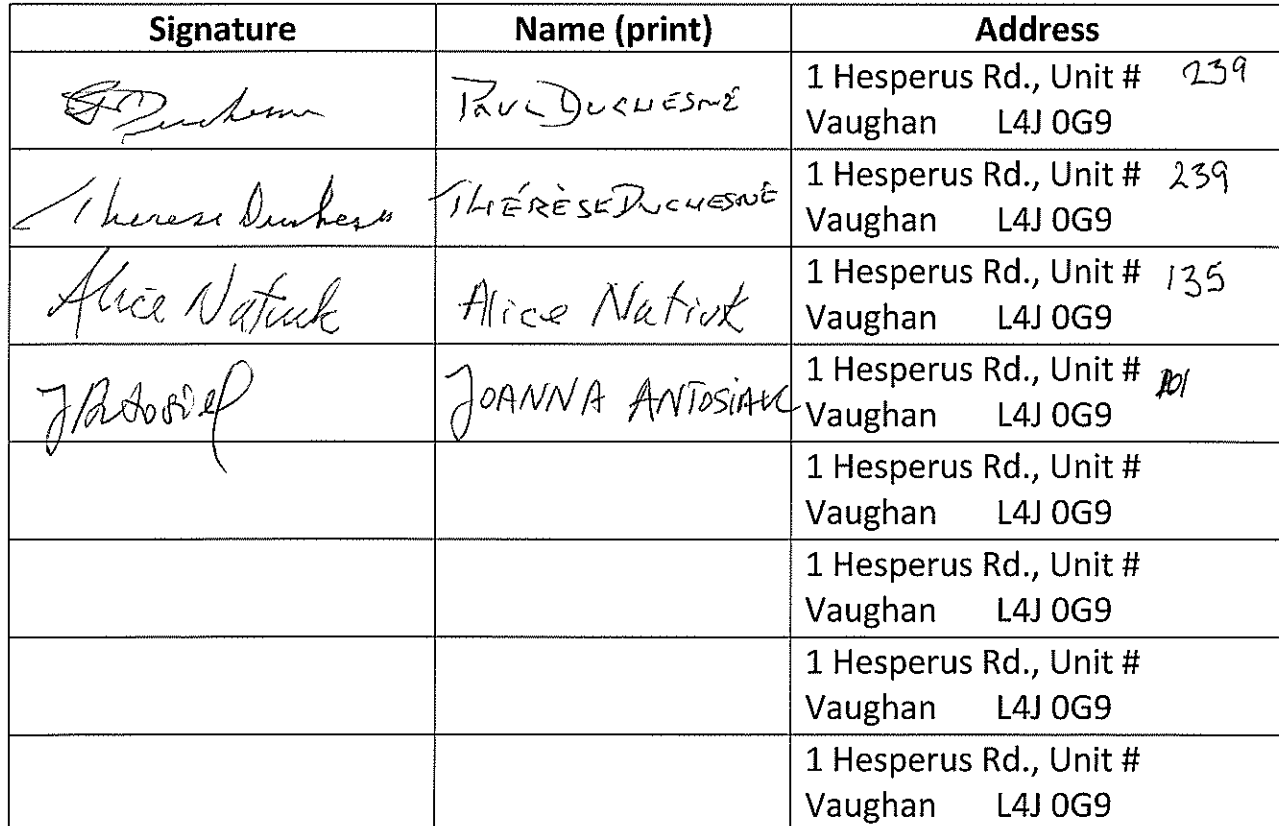 Signature Name (print) Address
Paul Duchesné 1 Hesperus Rd., Unit # 239
Vaughan L4J 0G9
Therese Duchesne THÉRÈSE DUCHESNÉ 1 Hesperus Rd., Unit # 239
Vaughan L4J 0G9
Alice Natiuk Alice Natiuk 1 Hesperus Rd., Unit # 135
Vaughan L4J 0G9
JOANNA 1 Hesperus Rd., Unit #
Vaughan L4J 0G9
1 Hesperus Rd., Unit #
Vaughan L4J 0G9
1 Hesperus Rd., Unit #
Vaughan L4J 0G9
1 Hesperus Rd., Unit #
Vaughan L4J 0G9
1 Hesperus Rd., Unit #
Vaughan L4J 0G9